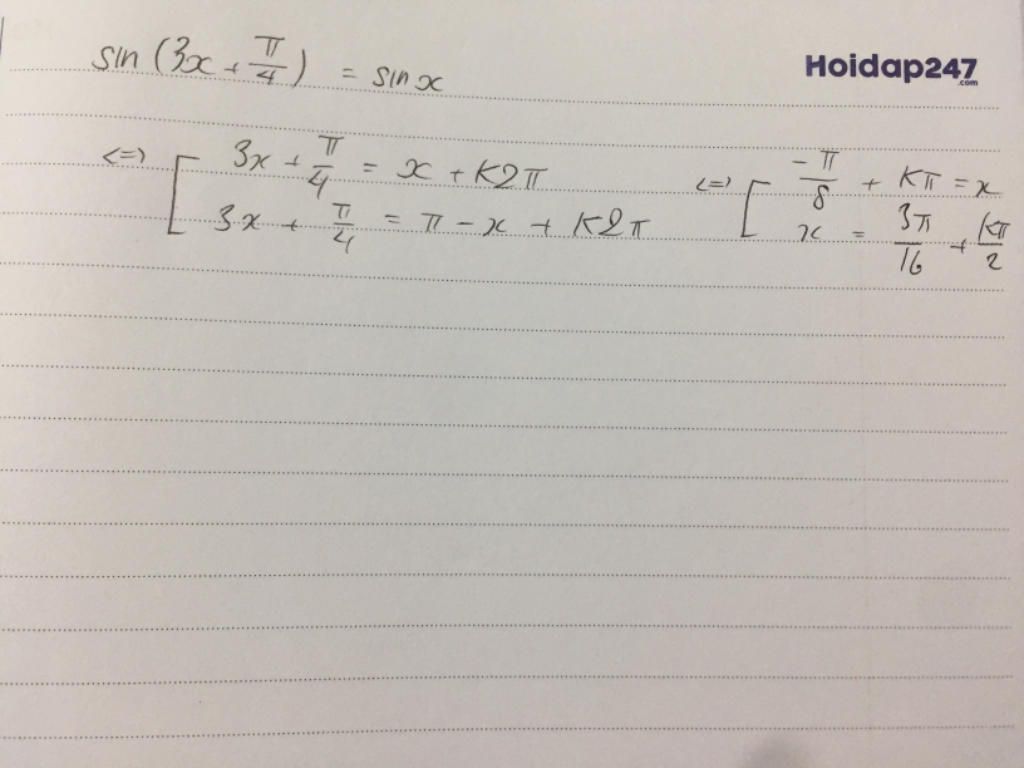 sin (3x + π/4) = sin x
Hoidap247
.com
<=> [ 3x + π/4 = x + k2π
3x + π/4 = π - x + k2π
<=> [ -π/8 + kπ = x
x = 3π/16 + kπ/2